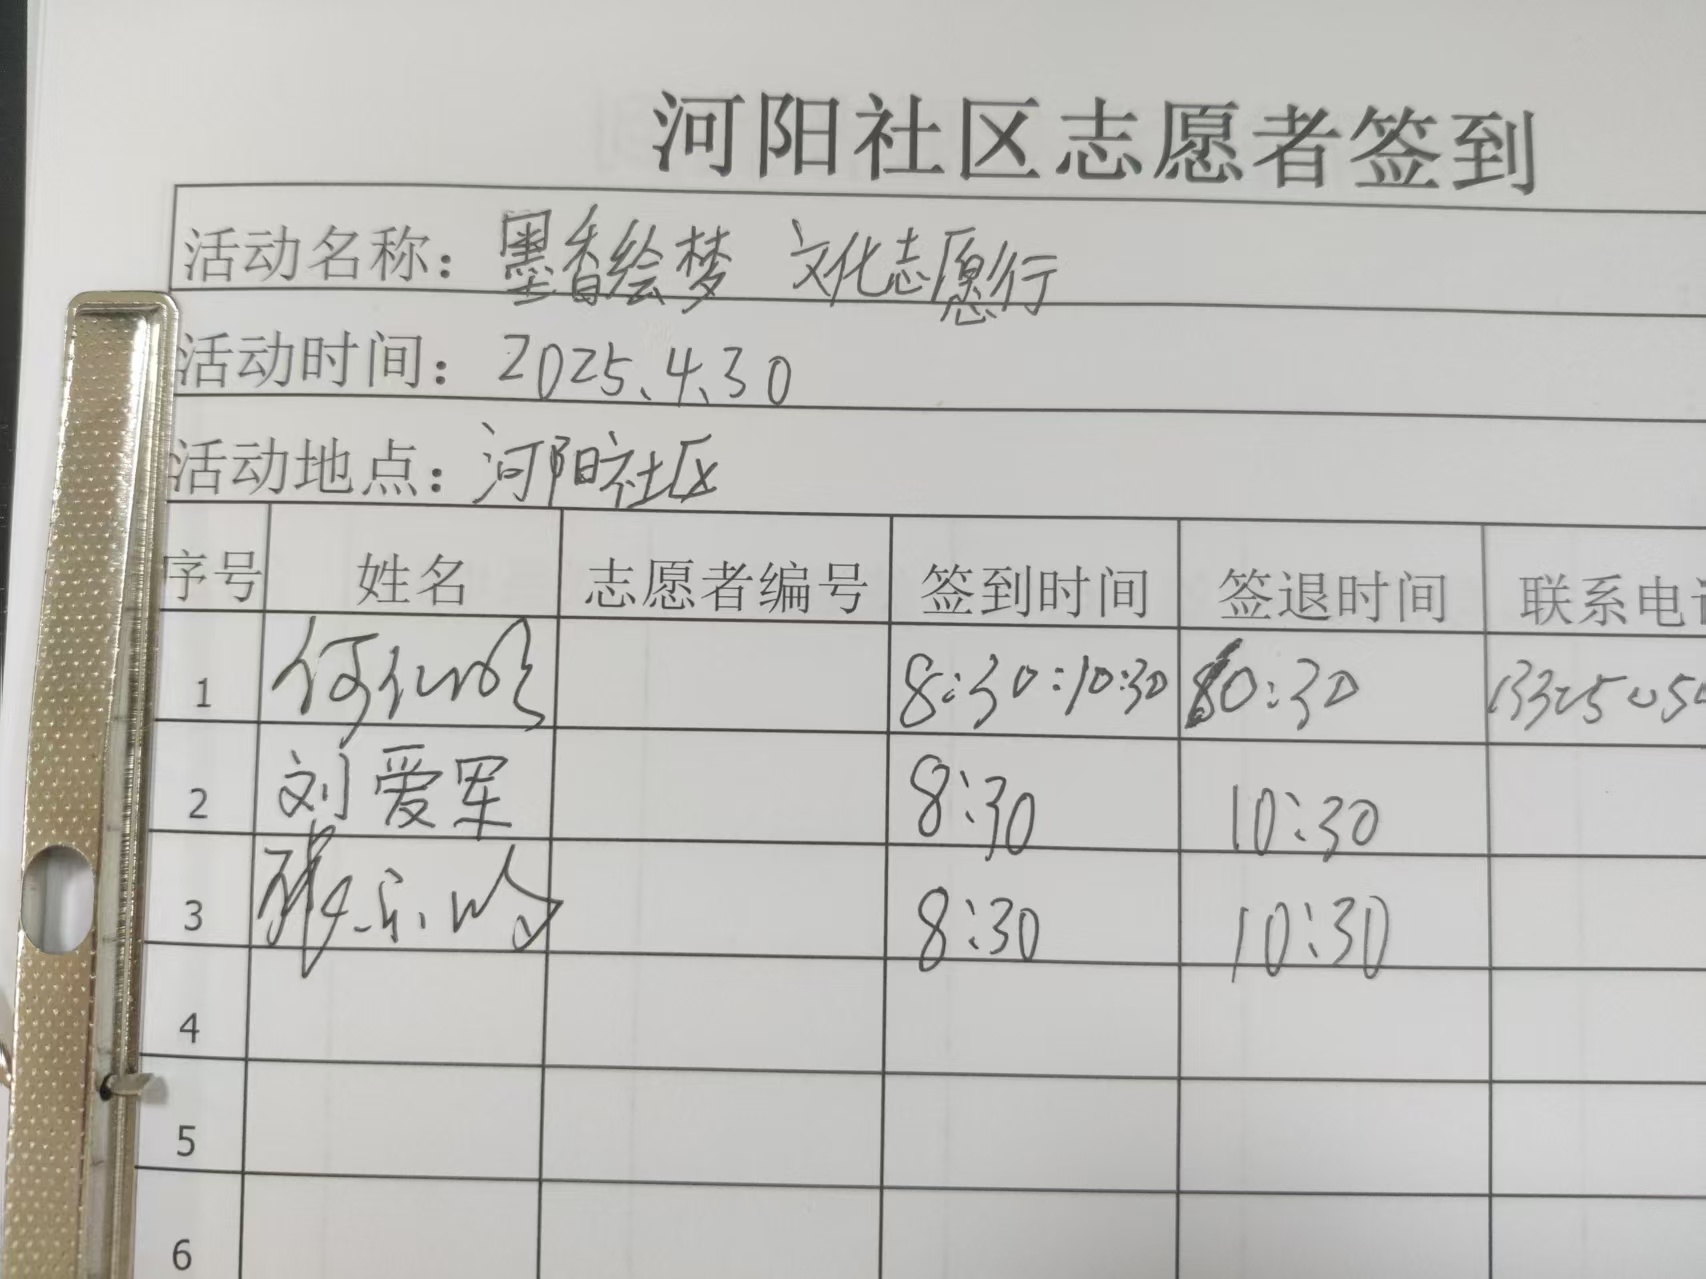 河阳社区志愿者签到
活动名称：墨香绘梦 文化志愿行
活动时间：2025.4.30
活动地点：河阳社区
序号 姓名 志愿者编号 签到时间 签退时间 联系电
1 8:30:10:30 10:30
2 刘爱军 8:30 10:30
3 8:30 10:30
4
5
6